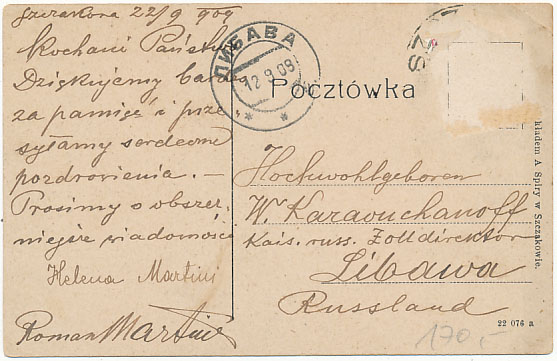 Szczakowa 22/9 909
Kochani Państwo
Dziękujemy bardzo
za pamięć i prze
syłamy serdeczne
pozdrowienia. —
Prosimy o obszer-
niejsze wiadomości
Helena Martini
Roman Martini
ЛИБАВА
12 9 09
SZ
Pocztówka
Hochwohlgeboren
W. Karaouchanoff
Kais. russ. Zolldirektor
Libawa
Russland
kładem A Spiry w Szczakowie.
22 076 a
170,-